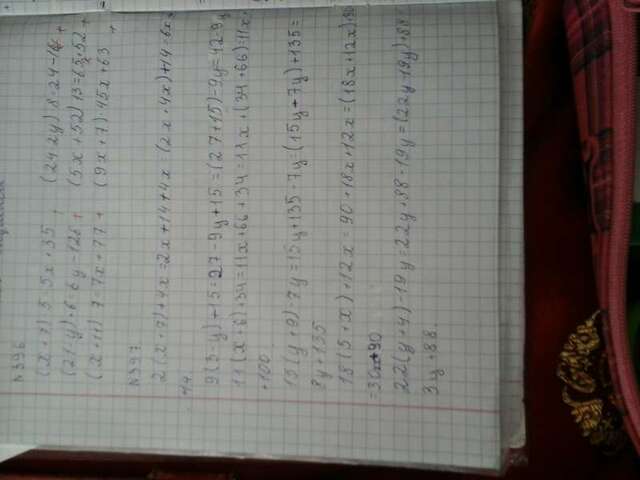 N396
(x+7)·5=5x+35 + (24-2y)·8=24-16 +
(21-y)·6=6y-126 + (5x+52)13=65+52 +
(x+11)·7=7x+77 + (9x+7)·45x+63 +
N397
2(x+7)+4x=2x+14+4x=(2x+4x)+14=6x+
14.
9(3-y)+15=27-9y+15=(27+15)-9y=42-9y
11(x+6)+34=11x+66+34=11x+(34+66)=11x+
+100
15(y+9)-7y=15y+135-7y=(15y+7y)+135=
8y+135
18(5+x)+12x=90+18x+12x=(18x+12x)+90
=30x+90
22(y+4)-19y=22y+88-19y=(22y-19y)+88
3y+88.